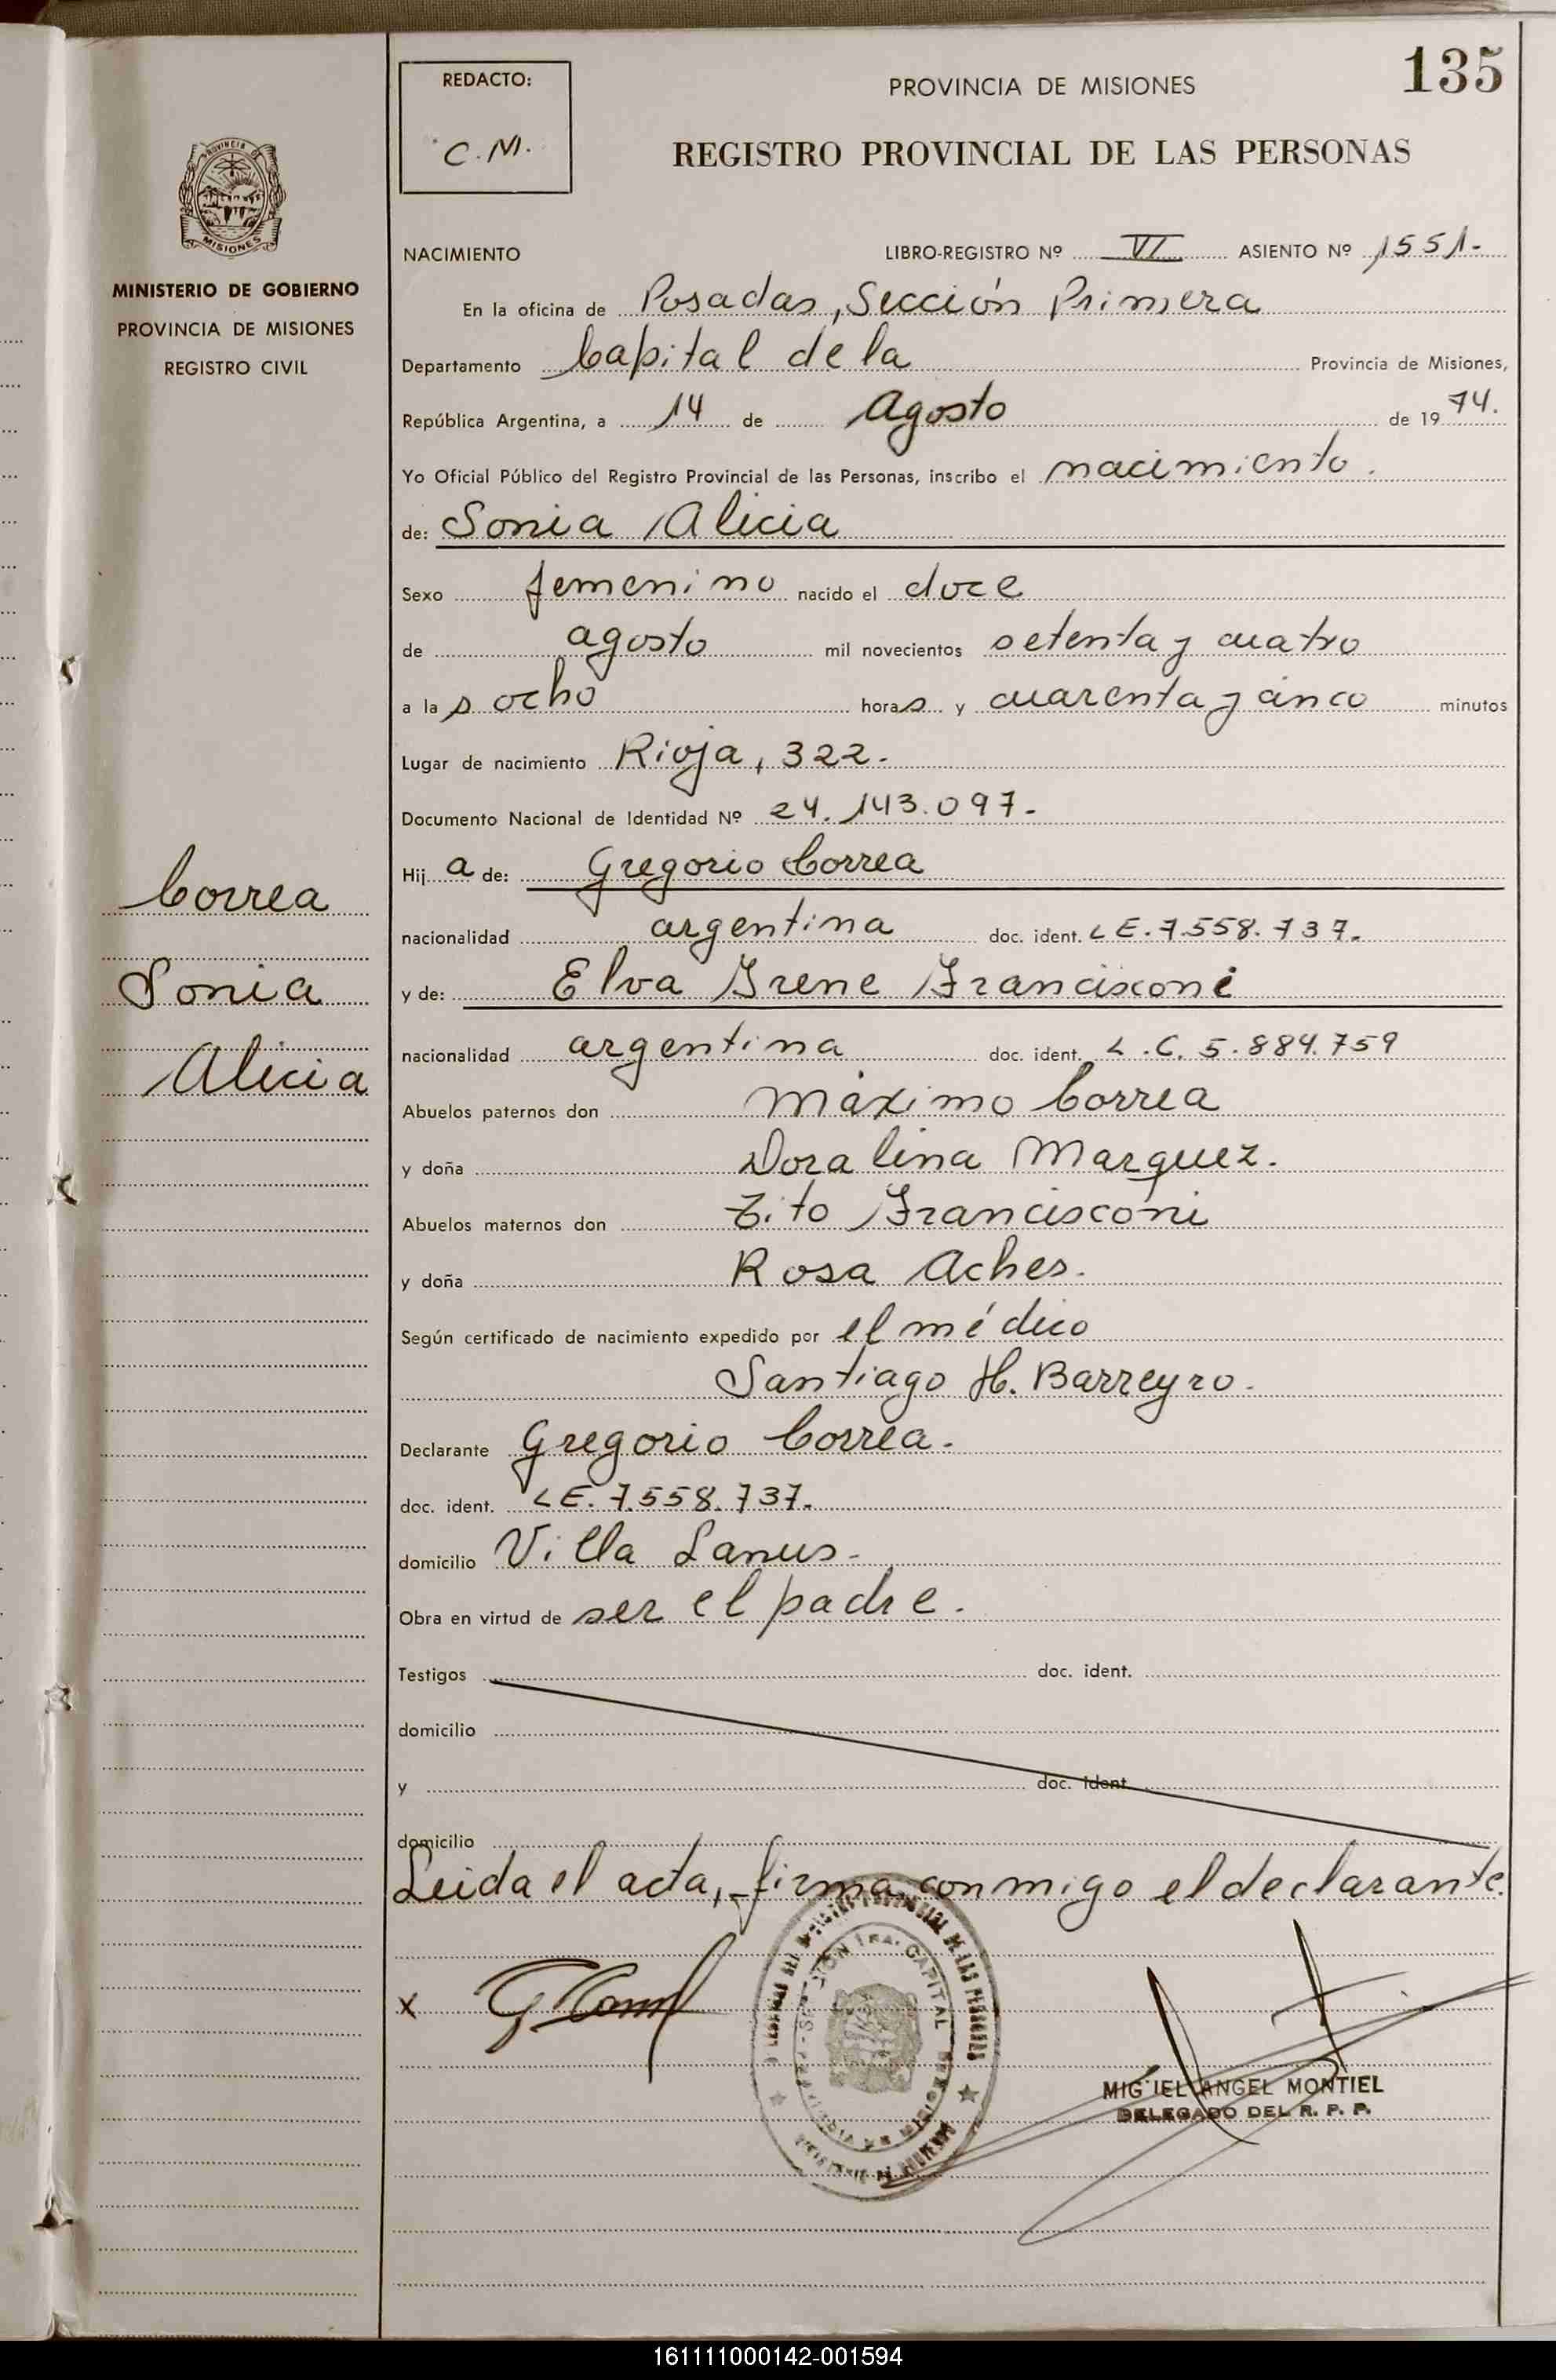 135
REDACTO:
C.M.
PROVINCIA DE MISIONES
REGISTRO PROVINCIAL DE LAS PERSONAS
PROVINCIA DE
MISIONES
MINISTERIO DE GOBIERNO
PROVINCIA DE MISIONES
REGISTRO CIVIL
Correa
Sonia
Alicia
NACIMIENTO LIBRO-REGISTRO Nº VI ASIENTO Nº 1551.
En la oficina de Posadas, Sección Primera
Departamento Capital de la Provincia de Misiones,
República Argentina, a 14 de Agosto de 1974.
Yo Oficial Público del Registro Provincial de las Personas, inscribo el nacimiento.
de: Sonia Alicia
Sexo femenino nacido el doce
de agosto mil novecientos setenta y cuatro
a las ocho horas y cuarenta y cinco minutos
Lugar de nacimiento Rioja, 322.
Documento Nacional de Identidad Nº 24.143.097.
Hija de: Gregorio Correa
nacionalidad argentina doc. ident. LE. 7.558.737.
y de: Elva Irene Francisconi
nacionalidad argentina doc. ident. L.C. 5.884.759
Abuelos paternos don Máximo Correa
y doña Doralina Marquez.
Abuelos maternos don Tito Francisconi
y doña Rosa Aches.
Según certificado de nacimiento expedido por el médico
Santiago H. Barreyro.
Declarante Gregorio Correa.
doc. ident. LE. 7.558.737.
domicilio Villa Lanus.
Obra en virtud de ser el padre.
Testigos doc. ident.
domicilio
y doc. ident.
domicilio
Leida el acta, firma conmigo el declarante.
x
SECCION 1RA. CAPITAL
MIGUEL ANGEL MONTIEL
DELEGADO DEL R. P. P.
161111000142-001594